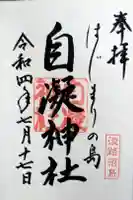 奉拝
はじまりの島
自凝神社
令和四年七月十七日
淡路沼島